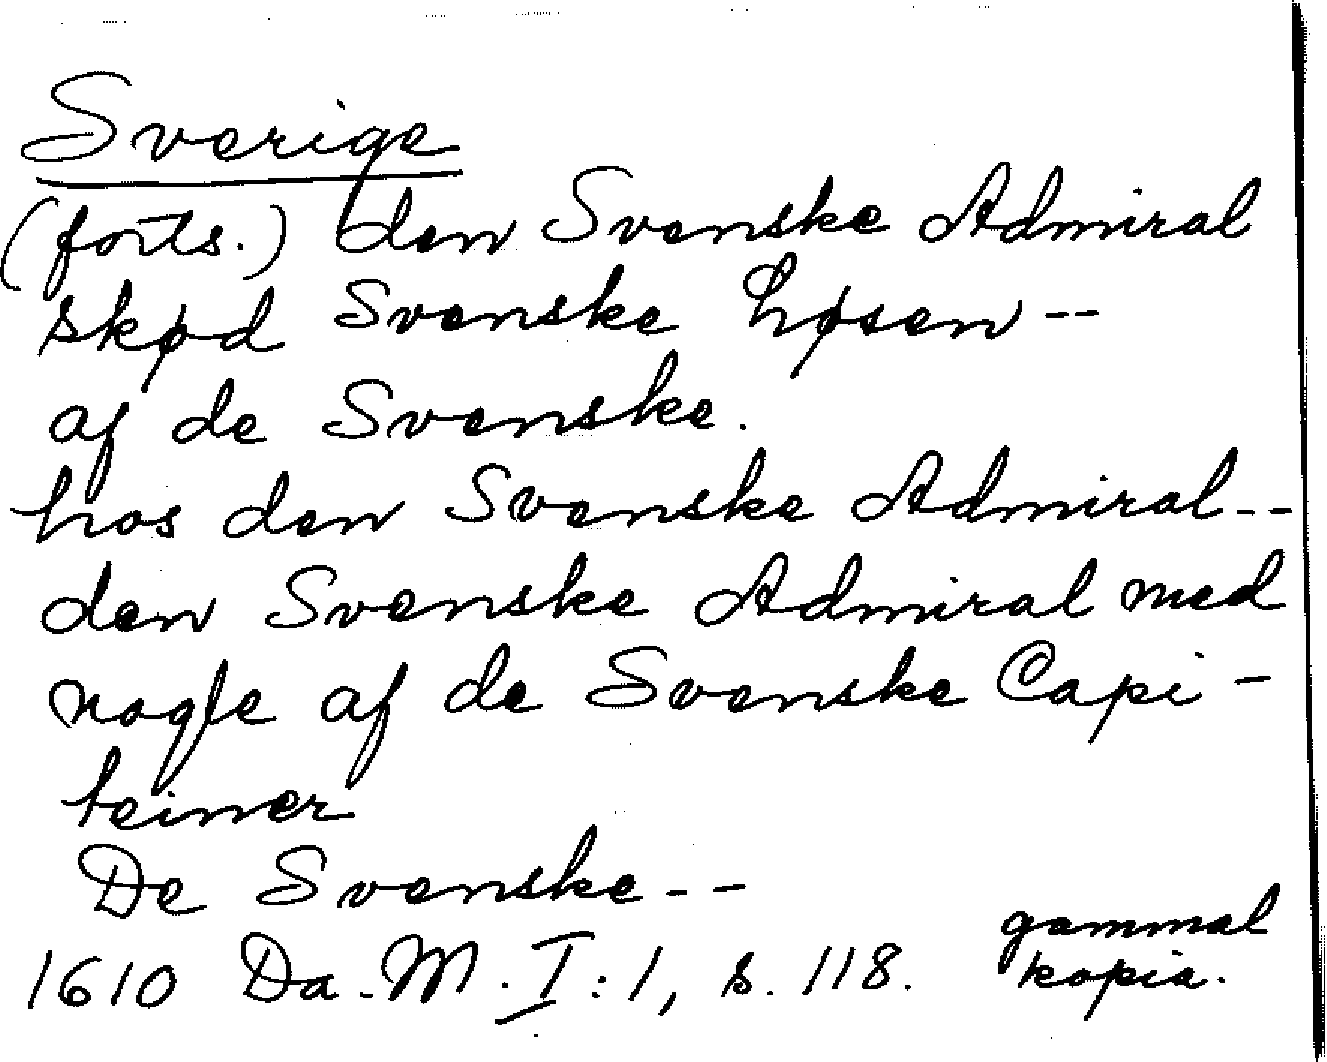 Sverige
(forts.) den Svenske Admiral
skød Svenske høsen --
af de Svenske.
hos den Svenske Admiral --
den Svenske Admiral med
nogle af de Svenske Capi-
teiner
De Svenske --
1610 Da. M. I:1, s. 118. gammal
kopia.